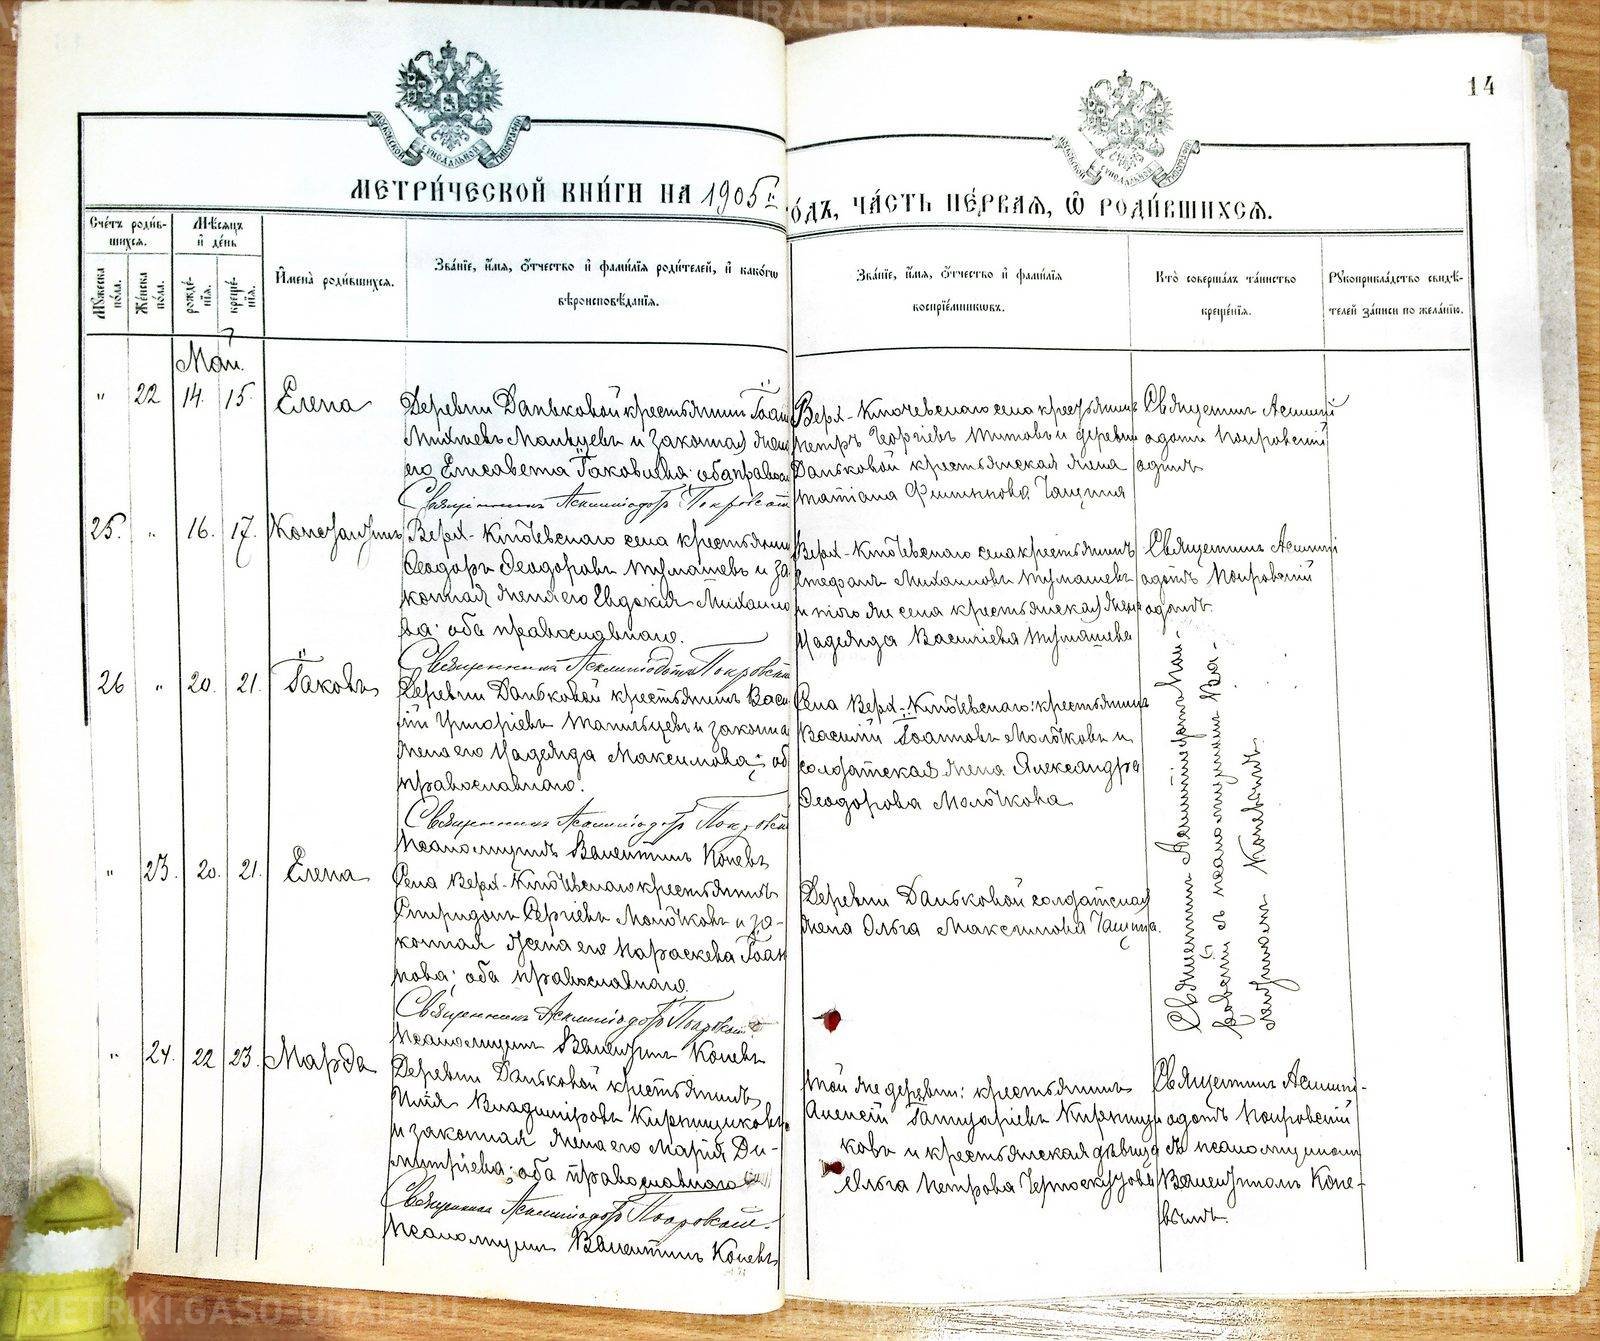 METRIKI.GASO-URAL.RU
METRIKI.GASO-URAL.RU
14
МЕТРИ́ЧЕСКОЙ КНИ́ГИ НА 1905 г.
ГО́ДЪ, ЧА́СТЬ ПЕ́РВАЯ, Ѡ РОДИ́ВШИХСЯ.
Сче́тъ роди́в-
шихся.
Мѣсяцъ
и де́нь
Мужеска по́ла.
Же́нска по́ла.
рожде́-
нія.
креще́-
нія.
Имена̀ роди́вшихся.
Зва́ніе, и́мя, о́тчество и фами́лія роди́телей, и како́гѡ
вѣроисповѣ́данія.
Зва́ніе, и́мя, о́тчество и фами́лія
воспріе́мниковъ.
Кто̀ соверша́лъ та́инство
креще́нія.
Рукоприкла́дство свидѣ́-
телей за́писи по жела́нію.
Май.
" 22 14. 15. Елена
Деревни Даньковой крестьянинъ Іоан
Михаевъ Мальцевъ и законная жена
его Елисавета Іаковлева: оба правосл
Священникъ Асклипіодотъ Покровскій
Верх-Ключевскаго села крестьянинъ
Петръ Георгіевъ Титовъ и деревни
Даньковой крестьянская жена
Татіана Чащина
Священникъ Асклипі
одотъ Покровскій
одинъ
25. " 16. 17. Константинъ
Верх-Ключевскаго села крестьянинъ
Ѳеодоръ Ѳеодоровъ Тумашевъ и за
конная жена его Евдокія Михаило
ва; оба православнаго.
Священникъ Асклипіодотъ Покровскій
Верх-Ключевскаго села крестьянинъ
Стефанъ Михаиловъ Тумашевъ
и того же села крестьянская жена
Надежда Василіева Тумашева
Священникъ Асклипі
одотъ Покровскій
одинъ.
26 " 20. 21. Іаковъ
Деревни Даньковой крестьянинъ Васи
лій Григоріевъ и законная
жена его Надежда Максимова; об
православнаго.
Священникъ Асклипіодотъ Покровскій
Псаломщикъ Валентинъ Коневъ
Села Верх-Ключевскаго: крестьянинъ
Василій Іоанновъ Молочковъ и
солдатская жена Александра
Ѳеодорова Молочкова
" 23. 20. 21. Елена
Села Верх-Ключевскаго крестьянинъ
Спиридонъ Сергіевъ Молочковъ и за-
конная жена его Параскева Іоан
нова; оба православнаго.
Священникъ Асклипіодотъ Покровскій
Псаломщикъ Валентинъ Коневъ
Деревни Даньковой солдатская
жена Ольга Максимова Чащина.
Священникъ Асклипіодотъ Пок-
ровскій съ псаломщикомъ Ва-
лентиномъ Коневымъ.
" 24. 22 23. Марѳа
Деревни Даньковой крестьянинъ
Илія Владиміровъ Кирпищиковъ
и законная жена его Марія Ди-
митріева; оба православнаго
Священникъ Асклипіодотъ Покровскій.
Псаломщикъ Валентинъ Коневъ
Той же деревни: крестьянинъ
Алексій Іануаріевъ Кирпищи
ковъ и крестьянская дѣвица
Ольга Петрова
Священникъ Асклипі-
одотъ Покровскій
съ псаломщикомъ
Валентиномъ Коне-
вымъ.
METRIKI.GASO-URAL.RU
METRIKI.GASO-URAL.RU